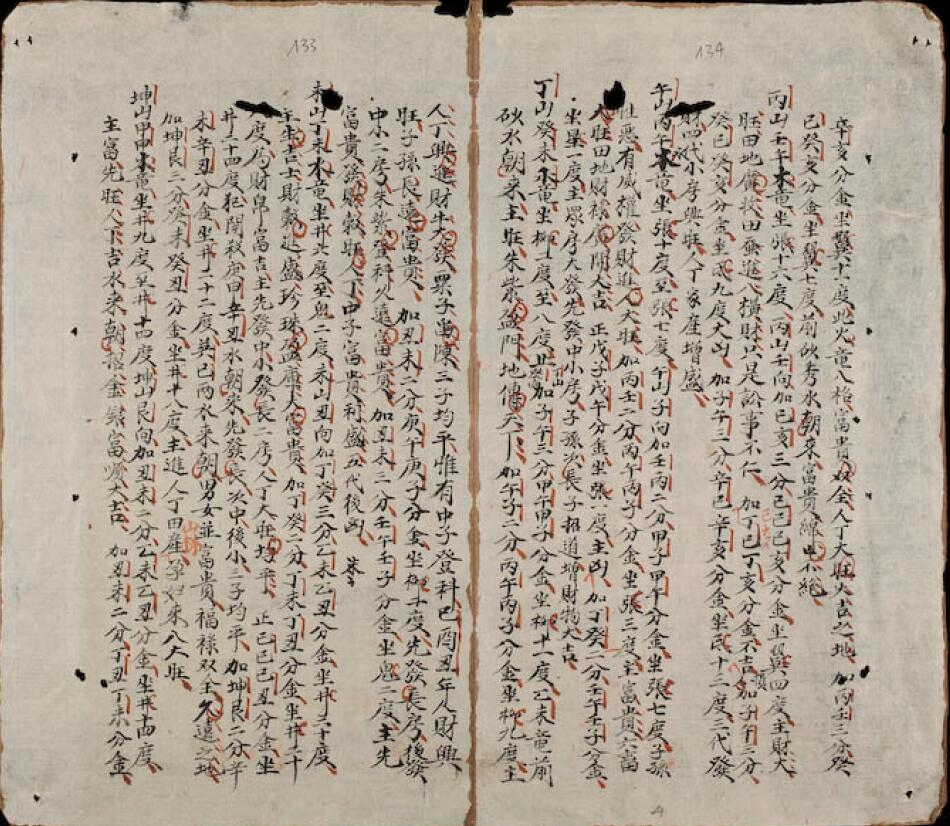 134
辛亥分金坐翼十一度此火竜入格富貴双全人丁大旺大吉之地加丙壬三分癸
巳癸亥分金坐翼七度前砂秀水朝來富貴綿远不絶
丙山壬午木竜坐張十六度丙山壬向加巳亥三分己巳己亥分金坐翼四度主財大
旺田地廣牧田蚕進八橫財只是訟事不仁加丁巳丁亥分金不吉加子午三分
癸巳癸亥分金坐 九度大凶加子午二分辛巳辛亥分金坐 十三度三代發
財四代小房興旺人丁家產增盛
午山丙午 竜坐張十度至張七度午山子向加壬丙二分甲子甲午分金坐張七度子孫
性惡有威權發財進人大旺加丙壬二分丙午丙子分金坐張三度主富貴六畜
大旺田地財祿廣閙人吉正戊子戊午分金坐張一度主凶加丁癸二分壬午壬子分金
坐星一度主眾房大發先發中小房子孫次長子招道增財物大吉
丁山癸未木竜坐柳 度至八度 加子午三分甲午甲子分金坐柳十一度乙未竜前
砂水朝來主旺朱紫盈門地傳天下加午子二分丙午丙子分金坐柳九度主
133
人丁興進財牛大發粟子萬陳三子均平惟有中子登科巳酉丑年人財興
旺子孫長遠富貴加丑未二分庚午庚子分金坐柳 度先發長房後發
中小二房朱紫登科久遠富貴加丑未三分壬午壬子分金坐鬼二度主先
富貴發財穀旺人丁中子富貴利盛五代後凶
未山丁未水竜坐井 度至鬼二度未山丑向加丁癸三分乙未乙丑分金坐井三十度
主坐吉士財穀進盛珍珠盈庫大富貴加丁癸二分丁未丁丑分金坐井二十
八度為財帛富吉主先發中小發長二房人丁大旺均平正己巳己丑分金坐
井二十四度犯關殺庚甲辛丑水朝來先發長次中後小三子均平加坤艮二分辛
未辛丑分金坐井二十二度巽巳丙水來朝男女並富貴福祿双全久遠之地
加坤艮三分癸未癸丑分金坐井十八度主進人丁田產孕婦來八大旺
坤山甲申 竜坐井九度至井十四度坤山艮向加丑未三分乙未乙丑分金坐井十四度
主富先旺人丁吉水來朝 金 富 大吉加丑未二分丁丑丁未分金